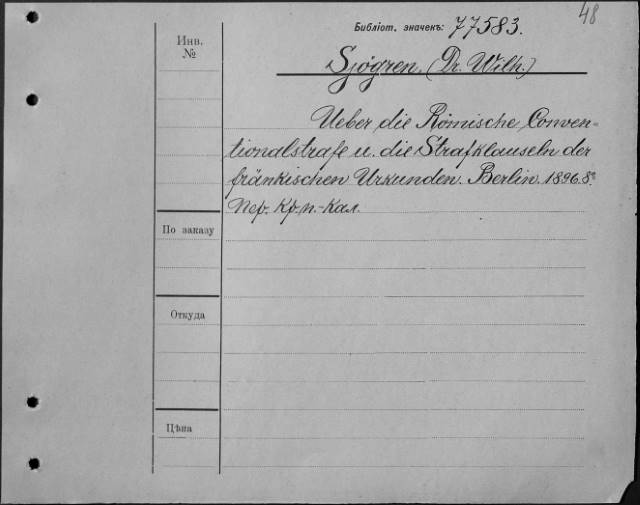 48
Библіот. значекъ: 77583.
Инв.
№
Sjögren, (Dr. Wilh.)
Ueber die Römische Conven-
tionalstrafe u. die Strafklauseln der
fränkischen Urkunden. Berlin. 1896. 8º
Пер. Кр. п.-кал.
По заказу
Откуда
Цѣна